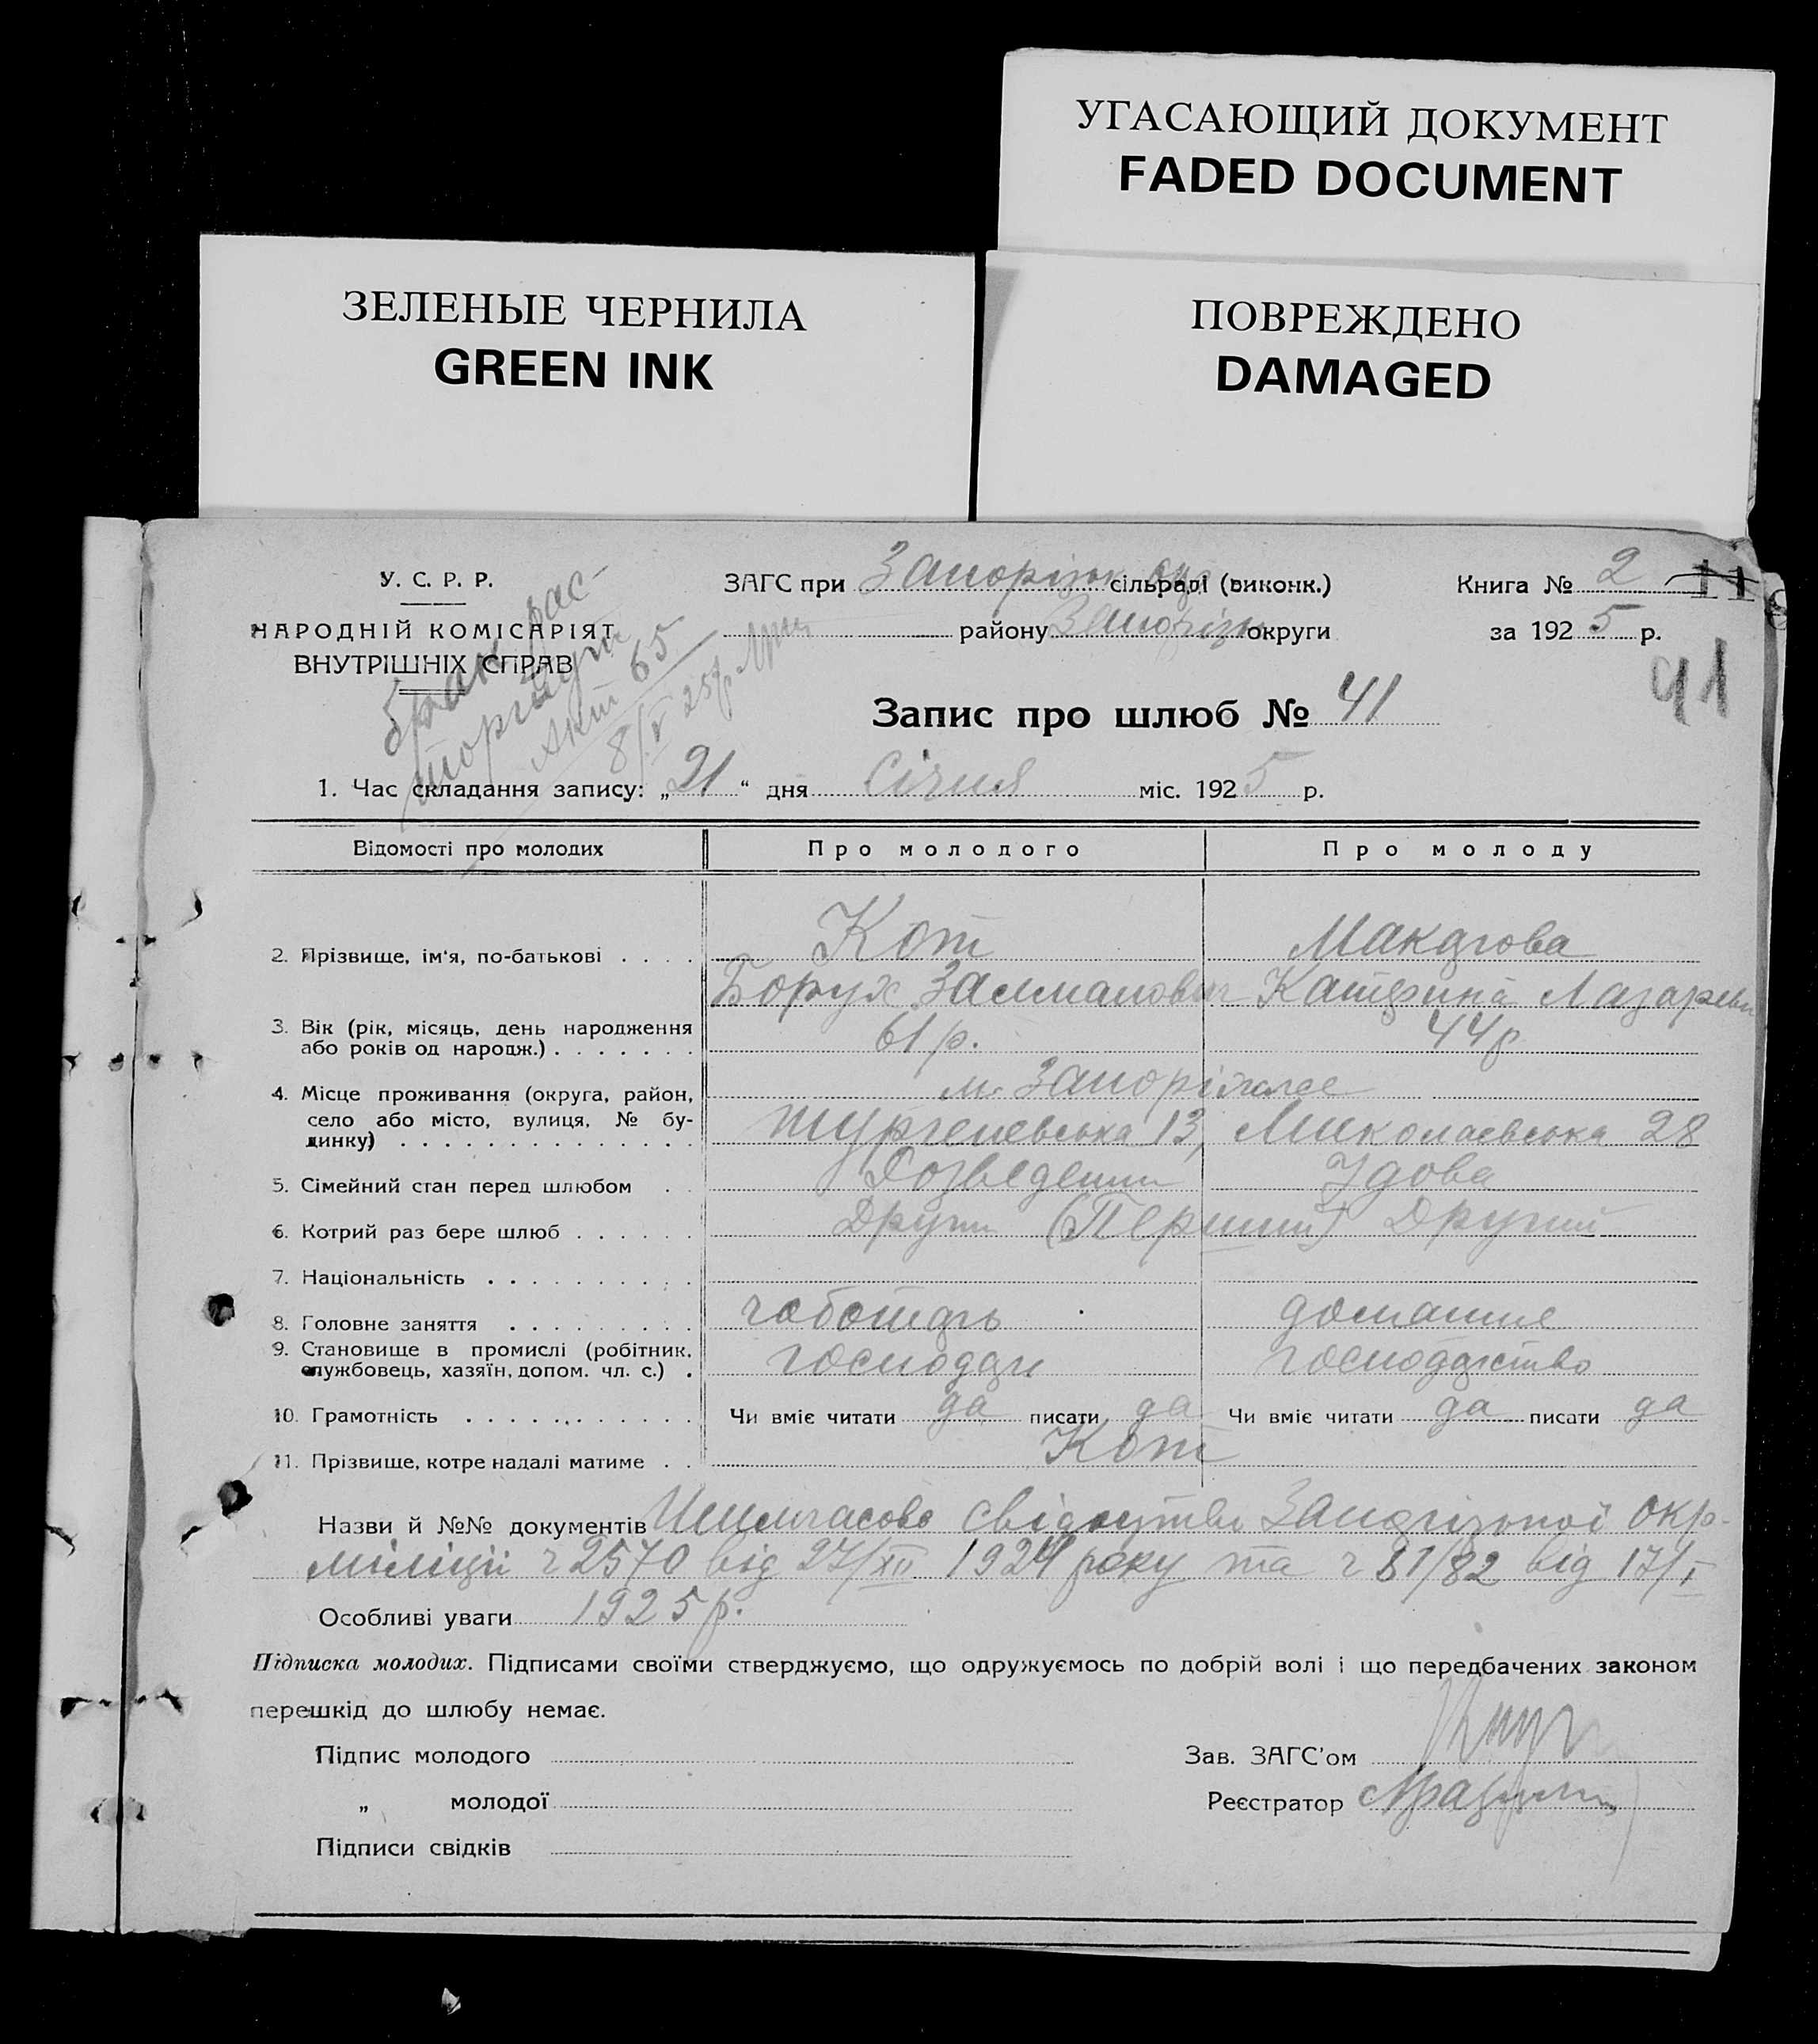 УГАСАЮЩИЙ ДОКУМЕНТ
FADED DOCUMENT
ЗЕЛЕНЫЕ ЧЕРНИЛА
GREEN INK
ПОВРЕЖДЕНО
DAMAGED
У. С. Р. Р.
НАРОДНІЙ КОМІСАРІЯТ
ВНУТРІШНІХ СПРАВ
брак рас-
торгнут
Акт 65
8/V 25 р.
ЗАГС при Запорізьк. окр. сільраді (виконк.)
району Запорізьк округи
Книга № 2
за 1925 р.
41
Запис про шлюб № 41
1. Час складання запису: „21“ дня Січня міс. 1925 р.
Відомості про молодих Про молодого Про молоду
2. Прізвище, ім'я, по-батькові . . . . Кот Макарова
Борух Залманович Катерина Лазаревн
3. Вік (рік, місяць, день народження
або років од народж.) . . . . . . . 61 р. 44 р
4. Місце проживання (округа, район, м. Запоріжже
село або місто, вулиця, № бу-
динку) . . . . . . . . . . . . . . Тургеневська 13, Миколаєвська 28
5. Сімейний стан перед шлюбом . . Розведений Удова
6. Котрий раз бере шлюб . . . . . . Другий (Перший) Другий
7. Національність . . . . . . . . . .
8. Головне заняття . . . . . . . . . чоботарь домашнє
9. Становище в промислі (робітник,
службовець, хазяїн, допом. чл. с.) . господарь господарство
10. Грамотність . . . . . . . . . . . . Чи вміє читати да писати да Чи вміє читати да писати да
11. Прізвище, котре надалі матиме . . Кот
Назви й №№ документів Тимчасово свідоцтво Запорізької окр.
міліції ч 2570 від 27/XII 1924 року та ч 81/82 від 17/I
Особливі уваги 1925 р.
Підписка молодих. Підписами своїми стверджуємо, що одружуємось по добрій волі і що передбачених законом
перешкід до шлюбу немає.
Підпис молодого Зав. ЗАГС'ом
„ молодої Реєстратор
Підписи свідків